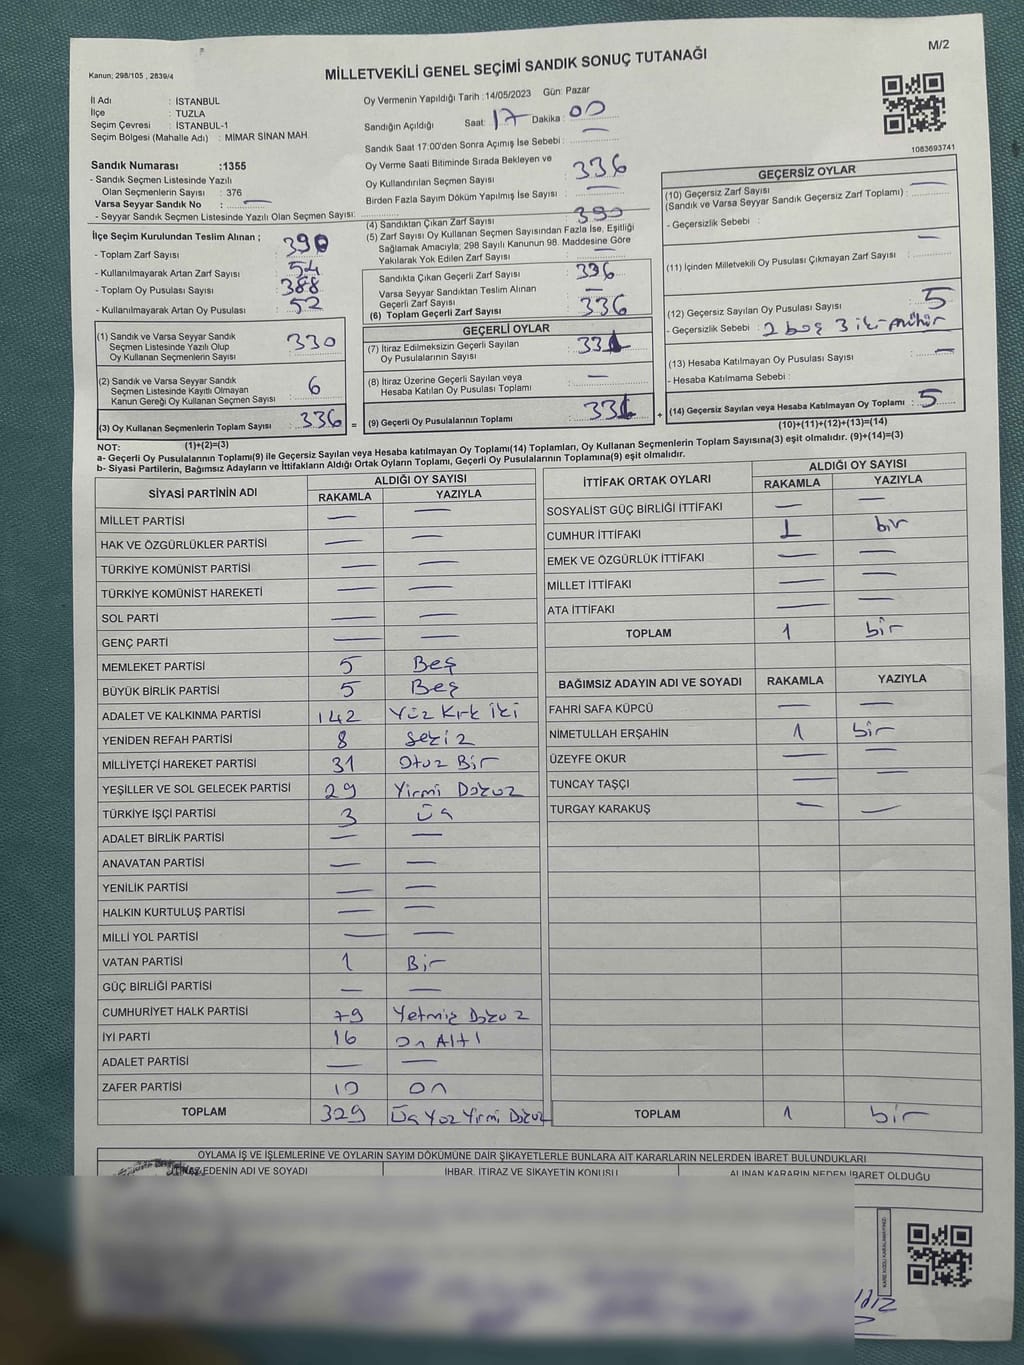 M/2
Kanun; 298/105 , 2839/4
MİLLETVEKİLİ GENEL SEÇİMİ SANDIK SONUÇ TUTANAĞI
İl Adı : İSTANBUL
İlçe : TUZLA
Seçim Çevresi : İSTANBUL-1
Seçim Bölgesi (Mahalle Adı) : MİMAR SİNAN MAH.
Oy Vermenin Yapıldığı Tarih : 14/05/2023 Gün: Pazar
Sandığın Açıldığı Saat: 17 Dakika : 00
Sandık Saat 17:00'den Sonra Açımış İse Sebebi : —
Oy Verme Saati Bitiminde Sırada Bekleyen ve
Oy Kullandırılan Seçmen Sayısı : 336
Birden Fazla Sayım Döküm Yapılmış İse Sayısı : —
1083693741
Sandık Numarası : 1355
- Sandık Seçmen Listesinde Yazılı
Olan Seçmenlerin Sayısı : 376
Varsa Seyyar Sandık No : —
- Seyyar Sandık Seçmen Listesinde Yazılı Olan Seçmen Sayısı:
İlçe Seçim Kurulundan Teslim Alınan ;
- Toplam Zarf Sayısı : 390
- Kullanılmayarak Artan Zarf Sayısı : 54
- Toplam Oy Pusulası Sayısı : 388
- Kullanılmayarak Artan Oy Pusulası : 52
(1) Sandık ve Varsa Seyyar Sandık
Seçmen Listesinde Yazılı Olup
Oy Kullanan Seçmenlerin Sayısı : 330
(2) Sandık ve Varsa Seyyar Sandık
Seçmen Listesinde Kayıtlı Olmayan
Kanun Gereği Oy Kullanan Seçmen Sayısı : 6
(3) Oy Kullanan Seçmenlerin Toplam Sayısı : 336 =
(1)+(2)=(3)
(4) Sandıktan Çıkan Zarf Sayısı : 390
(5) Zarf Sayısı Oy Kullanan Seçmen Sayısından Fazla İse, Eşitliği
Sağlamak Amacıyla; 298 Sayılı Kanunun 98. Maddesine Göre
Yakılarak Yok Edilen Zarf Sayısı : —
Sandıkta Çıkan Geçerli Zarf Sayısı : 336
Varsa Seyyar Sandıktan Teslim Alınan
Geçerli Zarf Sayısı : —
(6) Toplam Geçerli Zarf Sayısı : 336
GEÇERLİ OYLAR
(7) İtiraz Edilmeksizin Geçerli Sayılan
Oy Pusulalarının Sayısı : 331
(8) İtiraz Üzerine Geçerli Sayılan veya
Hesaba Katılan Oy Pusulası Toplamı : —
(9) Geçerli Oy Pusulalarının Toplamı : 331 +
GEÇERSİZ OYLAR
(10) Geçersiz Zarf Sayısı
(Sandık ve Varsa Seyyar Sandık Geçersiz Zarf Toplamı) : —
- Geçersizlik Sebebi :
(11) İçinden Milletvekili Oy Pusulası Çıkmayan Zarf Sayısı : —
(12) Geçersiz Sayılan Oy Pusulası Sayısı : 5
- Geçersizlik Sebebi : 2 boş 3 iki mühür
(13) Hesaba Katılmayan Oy Pusulası Sayısı : —
- Hesaba Katılmama Sebebi :
(14) Geçersiz Sayılan veya Hesaba Katılmayan Oy Toplamı : 5
(10)+(11)+(12)+(13)=(14)
NOT:
a- Geçerli Oy Pusulalarının Toplamı(9) ile Geçersiz Sayılan veya Hesaba katılmayan Oy Toplamı(14) Toplamları, Oy Kullanan Seçmenlerin Toplam Sayısına(3) eşit olmalıdır. (9)+(14)=(3)
b- Siyasi Partilerin, Bağımsız Adayların ve İttifakların Aldığı Ortak Oyların Toplamı, Geçerli Oy Pusulalarının Toplamına(9) eşit olmalıdır.
SİYASİ PARTİNİN ADI ALDIĞI OY SAYISI
RAKAMLA YAZIYLA
MİLLET PARTİSİ — —
HAK VE ÖZGÜRLÜKLER PARTİSİ — —
TÜRKİYE KOMÜNİST PARTİSİ — —
TÜRKİYE KOMÜNİST HAREKETİ — —
SOL PARTİ — —
GENÇ PARTİ — —
MEMLEKET PARTİSİ 5 Beş
BÜYÜK BİRLİK PARTİSİ 5 Beş
ADALET VE KALKINMA PARTİSİ 142 Yüz Kırk iki
YENİDEN REFAH PARTİSİ 8 Sekiz
MİLLİYETÇİ HAREKET PARTİSİ 31 Otuz Bir
YEŞİLLER VE SOL GELECEK PARTİSİ 29 Yirmi Dokuz
TÜRKİYE İŞÇİ PARTİSİ 3 Üç
ADALET BİRLİK PARTİSİ — —
ANAVATAN PARTİSİ — —
YENİLİK PARTİSİ — —
HALKIN KURTULUŞ PARTİSİ — —
MİLLİ YOL PARTİSİ — —
VATAN PARTİSİ 1 Bir
GÜÇ BİRLİĞİ PARTİSİ — —
CUMHURİYET HALK PARTİSİ 79 Yetmiş Dokuz
İYİ PARTİ 16 On Altı
ADALET PARTİSİ — —
ZAFER PARTİSİ 10 On
TOPLAM 329 Üç Yüz Yirmi Dokuz
İTTİFAK ORTAK OYLARI ALDIĞI OY SAYISI
RAKAMLA YAZIYLA
SOSYALİST GÜÇ BİRLİĞİ İTTİFAKI — —
CUMHUR İTTİFAKI 1 bir
EMEK VE ÖZGÜRLÜK İTTİFAKI — —
MİLLET İTTİFAKI — —
ATA İTTİFAKI — —
TOPLAM 1 bir
BAĞIMSIZ ADAYIN ADI VE SOYADI RAKAMLA YAZIYLA
FAHRİ SAFA KÜPCÜ — —
NİMETULLAH ERŞAHİN 1 bir
ÜZEYFE OKUR — —
TUNCAY TAŞÇI — —
TURGAY KARAKUŞ — —
TOPLAM 1 bir
OYLAMA İŞ VE İŞLEMLERİNE VE OYLARIN SAYIM DÖKÜMÜNE DAİR ŞİKAYETLERLE BUNLARA AİT KARARLARIN NELERDEN İBARET BULUNDUKLARI
İTİRAZ EDENİN ADI VE SOYADI İHBAR, İTİRAZ VE ŞİKAYETİN KONUSU ALINAN KARARIN NEDEN İBARET OLDUĞU
KARE KODU KARALAMAYINIZ!